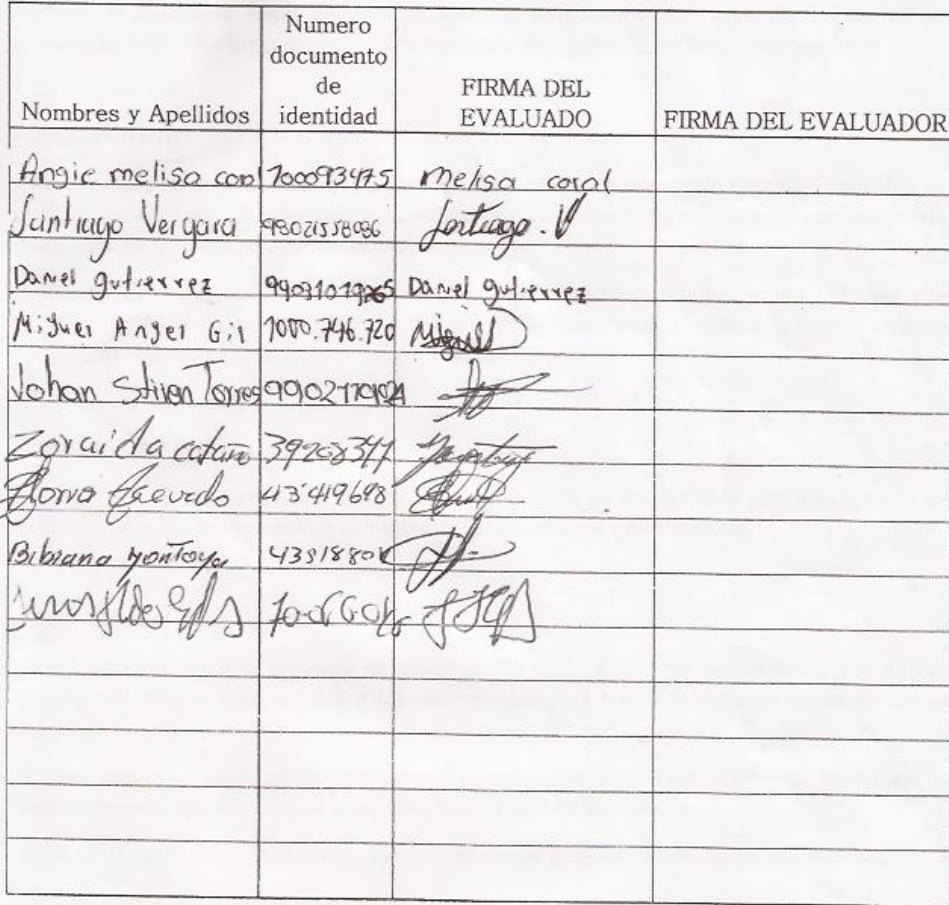 Nombres y Apellidos Numero documento de identidad FIRMA DEL EVALUADO FIRMA DEL EVALUADOR
Angie melisa coral 1000093475 melisa coral
Santiago Vergara 98021558086 Santiago. V
Daniel gutierrez 99031019265 Daniel gutierrez
Miguel Angel Gil 1000.746.720 Miguel
Johan Stiven Torres
Zoraida cataño 39208344
Gloria Acevedo 43419698
Bibiana Montoya 4331880